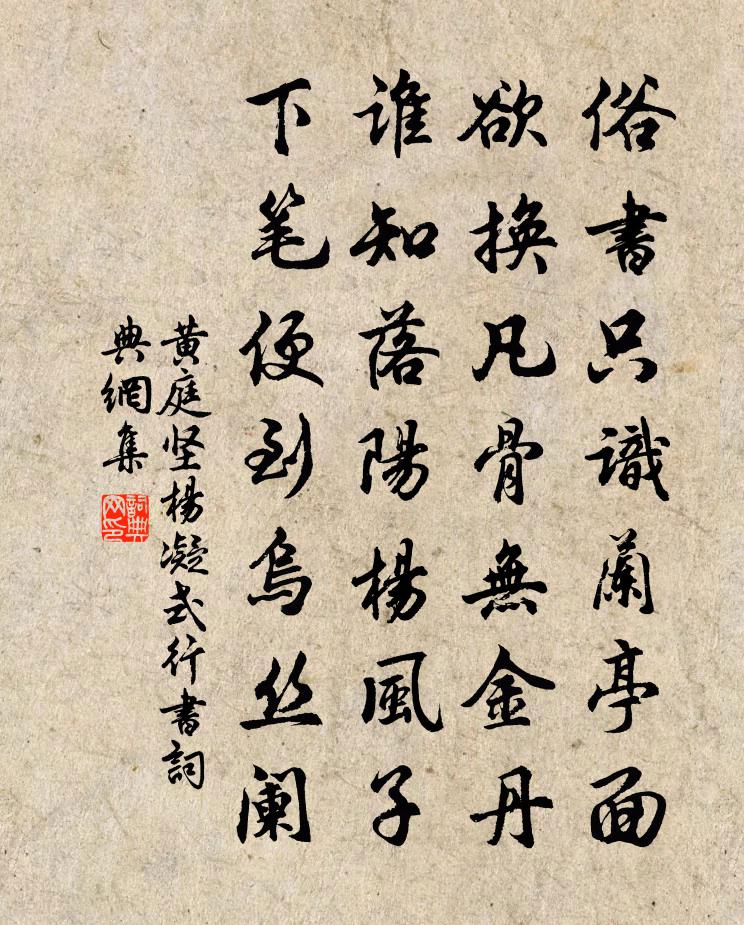 俗書只識蘭亭面
欲換凡骨無金丹
谁知落陽楊風子
下笔便到烏丝阑
黄庭坚楊凝式行書詞
典網集
詞典网印